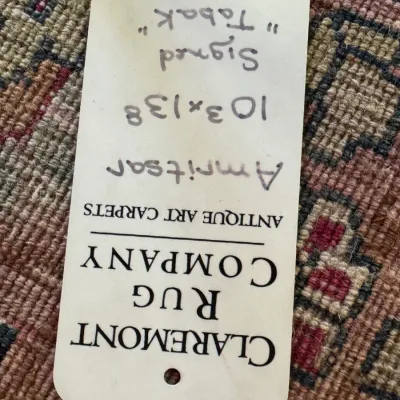 CLAREMONT
RUG
COMPANY
ANTIQUE ART CARPETS
Amritsar
103x138
Signed
"Tabak"